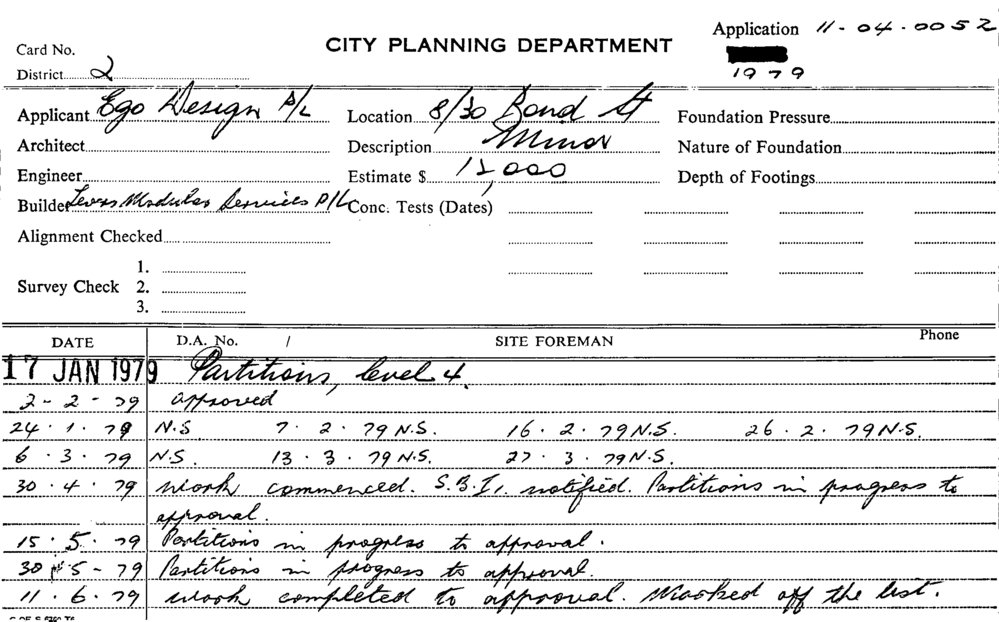 Application 11-04-0052
CITY PLANNING DEPARTMENT
Card No.
1979
District 2
Applicant Ego Design P/L Location 8/30 Bond St Foundation Pressure
Architect Description Minor Nature of Foundation
Engineer Estimate $ 12,000 Depth of Footings
Builder Modular Services P/L Conc. Tests (Dates)
Alignment Checked
1.
Survey Check 2.
3.
DATE D.A. No. / SITE FOREMAN Phone
17 JAN 1979 Partitions, level 4.
2-2-79 approved
24.1.79 N.S 7.2.79 N.S. 16.2.79 N.S. 26.2.79 N.S.
6.3.79 N.S. 13.3.79 N.S. 27.3.79 N.S.
30.4.79 work commenced. S.B.I. notified. Partitions in progress to
approval.
15.5.79 Partitions in progress to approval.
30-5-79 Partitions in progress to approval.
11.6.79 work completed to approval. Marked off the list.